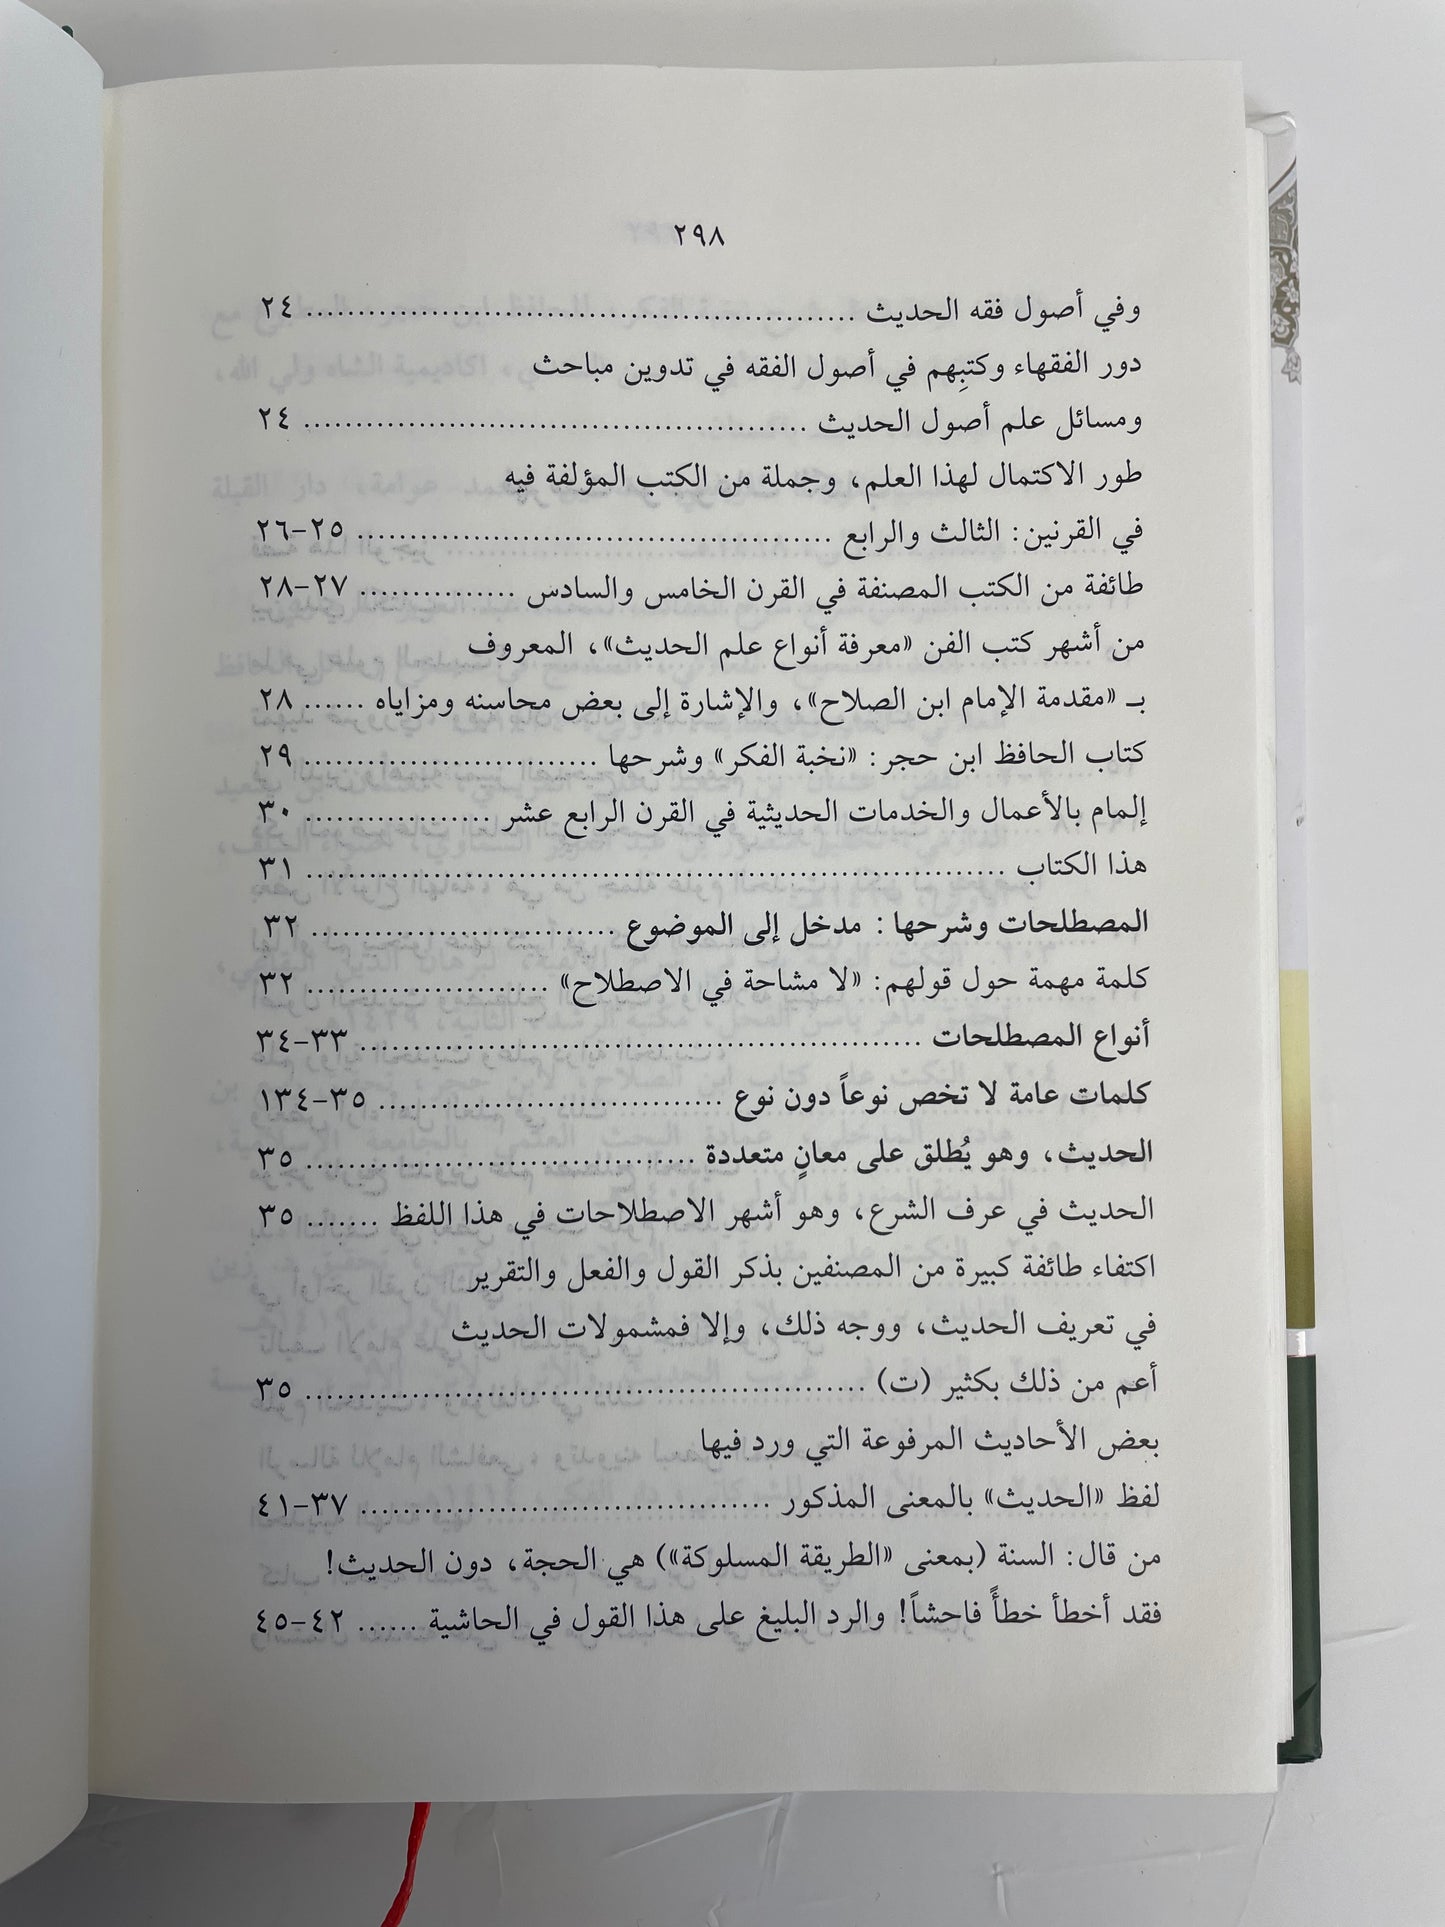 ٢٩٨
وفي أصول فقه الحديث ..................................................... ٢٤
دور الفقهاء وكتبِهم في أصول الفقه في تدوين مباحث
ومسائل علم أصول الحديث ................................................ ٢٤
طور الاكتمال لهذا العلم، وجملة من الكتب المؤلفة فيه
في القرنين: الثالث والرابع .............................................. ٢٥-٢٦
طائفة من الكتب المصنفة في القرن الخامس والسادس ............... ٢٧-٢٨
من أشهر كتب الفن «معرفة أنواع علم الحديث»، المعروف
بـ «مقدمة الإمام ابن الصلاح»، والإشارة إلى بعض محاسنه ومزاياه ...... ٢٨
كتاب الحافظ ابن حجر: «نخبة الفكر» وشرحها .............................. ٢٩
إلمام بالأعمال والخدمات الحديثية في القرن الرابع عشر .................. ٣٠
هذا الكتاب .................................................................... ٣١
المصطلحات وشرحها : مدخل إلى الموضوع ............................. ٣٢
كلمة مهمة حول قولهم: «لا مشاحة في الاصطلاح» ....................... ٣٢
أنواع المصطلحات ...................................................... ٣٣-٣٤
كلمات عامة لا تخص نوعاً دون نوع ................................. ٣٥-١٣٤
الحديث، وهو يُطلق على معانٍ متعددة ..................................... ٣٥
الحديث في عرف الشرع، وهو أشهر الاصطلاحات في هذا اللفظ ....... ٣٥
اكتفاء طائفة كبيرة من المصنفين بذكر القول والفعل والتقرير
في تعريف الحديث، ووجه ذلك، وإلا فمشمولات الحديث
أعم من ذلك بكثير (ت) ...................................................... ٣٥
بعض الأحاديث المرفوعة التي ورد فيها
لفظ «الحديث» بالمعنى المذكور ........................................ ٣٧-٤١
من قال: السنة (بمعنى «الطريقة المسلوكة») هي الحجة، دون الحديث!
فقد أخطأ خطأً فاحشاً! والرد البليغ على هذا القول في الحاشية ...... ٤٢-٤٥